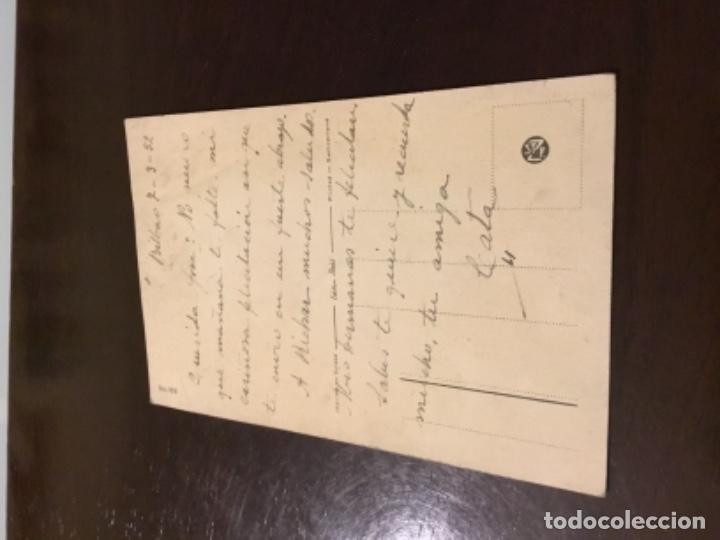 Bilbao 7-3-52
Querida Jose: No quiero
que mañana te falte mi
cariñosa felicitación asi que
te envio en un fuerte abrazo.
A Richar muchos saludos.
Mis hermanas te felicitan.
Sabes te quiere y recuerda
mucho, tu amiga
Cata
todocoleccion.net